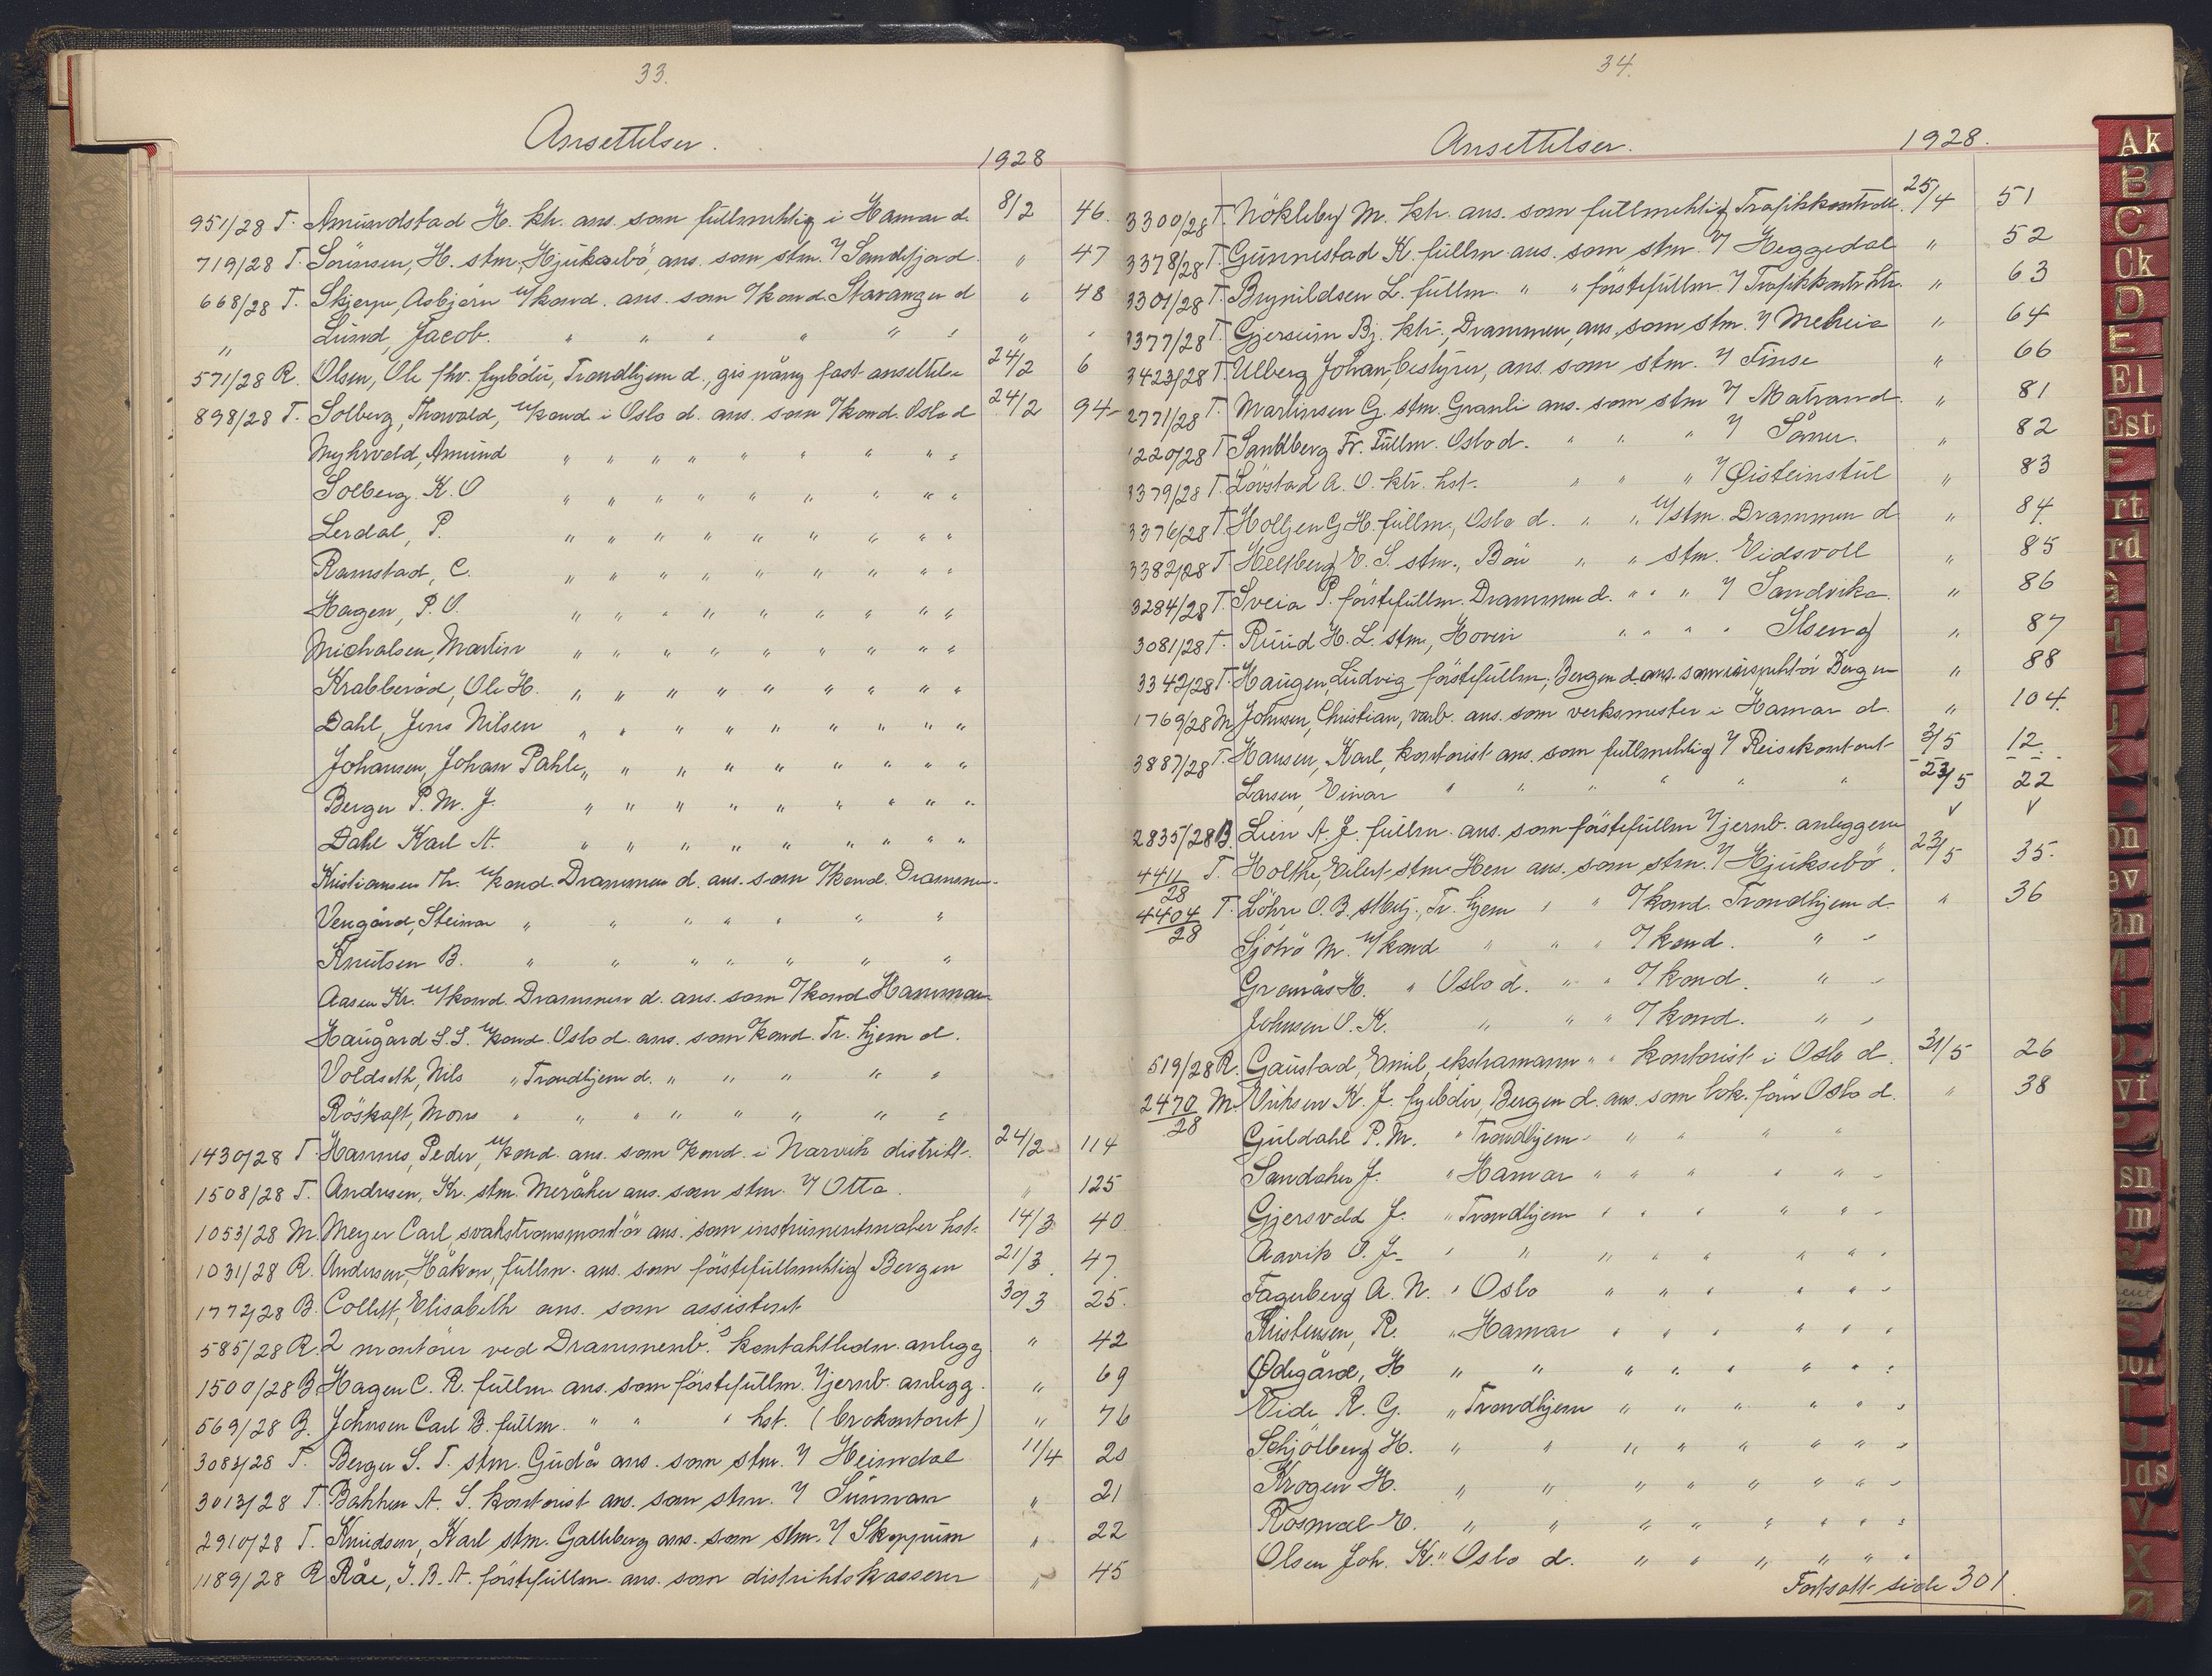 33.
Ansettelser.
1928
951/28 T. Amundstad H. ktr. ans. som fullmektig i Hamar d. 8/2 46.
719/28 T. Sörensen, H. stm. Hjuksebö, ans. som stm. v/ Sandefjord. " 47
668/28 T. Skjerpe, Asbjörn u/kond. ans. som o/kond. Stavanger d " 48
" Lund, Jacob. " " " " " " " "
571/28 R. Olsen, Ole fhv. fyrböter, Trondhjem d., gis påny fast ansettelse 24/2 6
898/28 T. Solberg, Thorvald, u/kond i Oslo d. ans. som o/kond. Oslo d 24/2 94
Myhrveld, Amund " " " " " " " " "
Solberg K. O " " " " " " " " "
Lerdal, P. " " " " " " " " "
Ramstad, C. " " " " " " " " "
Hagen, P. O. " " " " " " " " "
Michalsen, Martin " " " " " " " " "
Krabberöd, Ole H. " " " " " " " " "
Dahl, Jens Nilsen " " " " " " " " "
Johansen, Johan Pahle " " " " " " " " "
Berger P. M. J. " " " " " " " " "
Dahl Karl A. " " " " " " " " "
Kristiansen Th. u/kond. Drammen d. ans. som o/kond. Drammen.
Vengård, Steinar " " " " " " "
Knutsen B. " " " " " " "
Aasen Kr. u/kond. Drammen d. ans. som o/kond. Hammar
Haugård S. S. u/kond. Oslo d. ans. som o/kond. Tr. hjem d.
Voldseth, Nils " Trondhjem d. " " " " "
Röskaft, Mons " " " " " " " "
1430/28 T. Hannes, Peder, u/kond. ans. som o/kond. i Narvik distrikt. 24/2 114
1508/28 T. Andresen, Kr. stm. Meråker ans. som stm. v/ Otta. " 125
1053/28 M. Meyer Carl, svakstrømsmontör ans. som instrumentmaker hst. 14/3 40
1031/28 R. Andersen, Håkon, fullm. ans. som förstefullmektig Bergen 21/3 47
1772/28 B. Collett, Elisabeth ans. som assistent 30/3 25.
585/28 R. 2 montörer ved Drammenb.s kontaktledn. anlegg " 42
1500/28 B Hagen C. R. fullm. ans. som förstefullm. v/ jernb. anlegg. " 69
569/28 B. Johnsen Carl B. fullm. " " " hst. (brokontoret) " 76
3083/28 T. Berger S. T. stm. Gudå ans. som stm. v/ Heimdal 11/4 20
3013/28 T. Bakken A. S. kontorist ans. som stm. v/ Sunnan " 21
2910/28 T. Knudsen, Karl stm. Galleberg ans. som stm. v/ Skoppum " 22
1189/28 R Råe, J. B. A. förstefullm. ans. som distriktskasserer " 45
34.
Ansettelser.
1928.
3300/28 T. Nökleby M. ktr. ans. som fullmektig Trafikkontroll. 25/4 51
3378/28 T. Gunnestad K. fullm. ans. som stm. v/ Heggedal " 52
3301/28 T. Brynildsen L. fullm. " " förstefullm. v/ Trafikkontr. hst. " 63
3377/28 T. Gjerseim Bj. ktr., Drammen, ans. som stm. v/ Meheia " 64
3423/28 T. Ulberg Johan, bestyrer, ans. som stm. v/ Finse " 66
2771/28 T. Martinsen G. stm. Granli ans. som stm v/ Matrand. " 81
1220/28 T. Sandberg Fr. Fullm. Oslo d. " " " v/ Såner. " 82
3379/28 T. Lövstad A. O. ktr. hst. " " " v/ Øisteinstul " 83
3376/28 T. Holtjen G. H. fullm., Oslo d. " " u/stm. Drammen d. " 84.
3382/28 T. Hellberg E. S. stm., Bön " " stm. Eidsvoll " 85
3284/28 T. Sveia P. förstefullm. Drammen d. " " " v/ Sandvika. " 86
3081/28 T. Ruud H. L. stm., Hovin " " " " Ilseng " 87
3342/28 T. Haugen, Ludvig förstefullm., Bergen d. ans. som inspektör Bergen " 88
1769/28 M Johnsen, Christian, varb. ans. som verksmester i Hamar d. " 104.
3887/28 T. Hansen, Karl, kontorist ans. som fullmektig v/ Reisekontoret 3/5 12.
Larsen, Einar " " " " " " 23/5 22
2835/28 B. Lien A. J. fullm. ans. som förstefullm v/ jernb. anleggene V V
4411/28 T. Holthe, Eilert stm. Hen ans. som stm. v/ Hjuksebö. 23/5 35.
4404/28 T. Löhre O. B. stbetj., Tr. hjem " " o/kond. Trondhjem d. " 36
Sjöbö M. u/kond " " " o/kond. " "
Granås H. " Oslo d. " " o/kond. " "
Johnsen O. K. " " " o/kond. " "
519/28 R. Gaustad, Emil, ekstramann " " kontorist i Oslo d. 31/5 26
2470/28 M. Eriksen K. J. fyrböter, Bergen d. ans. som lok. förer Oslo d. " 38
Guldahl P. M. " Trondhjem " " " "
Sandaker J. " Hamar " " " " " "
Gjersveld J. " Trondhjem " " " " " "
Aavik O. J. " " " " " " " "
Fagerberg A. N. " Oslo " " " " " "
Kristensen, R. " Hamar " " " " " "
Ødegård, H " " " " " " " "
Eide R. G. " Trondhjem " " " " " "
Schjölberg H. " " " " " " " "
Krogen H. " " " " " " " "
Rosmæl E. " " " " " " " "
Olsen Joh. K. " Oslo d. " " " " " "
Fortsatt side 301.
Ak
B
C
Ck
D
E
El
Est
F
rt
rd
G
I
J
K
ev
ån
M
N
vi
sn
S
T
U
V
X
Ø